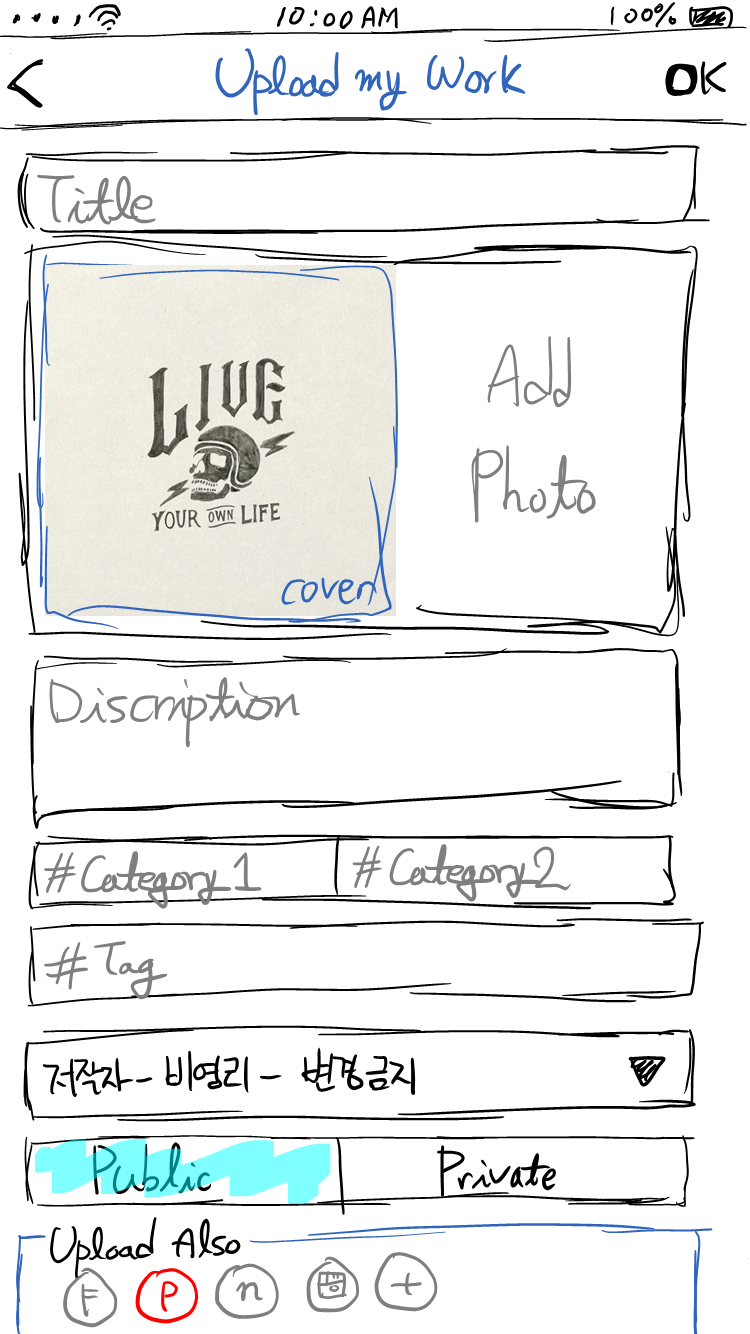 10:00 AM 100%
< Upload my Work OK
Title
LIVE
YOUR OWN LIFE
cover
Add
Photo
Discription
#Category_1 #Category_2
#Tag
저작자 - 비영리 - 변경금지
Public Private
Upload Also
F P n +